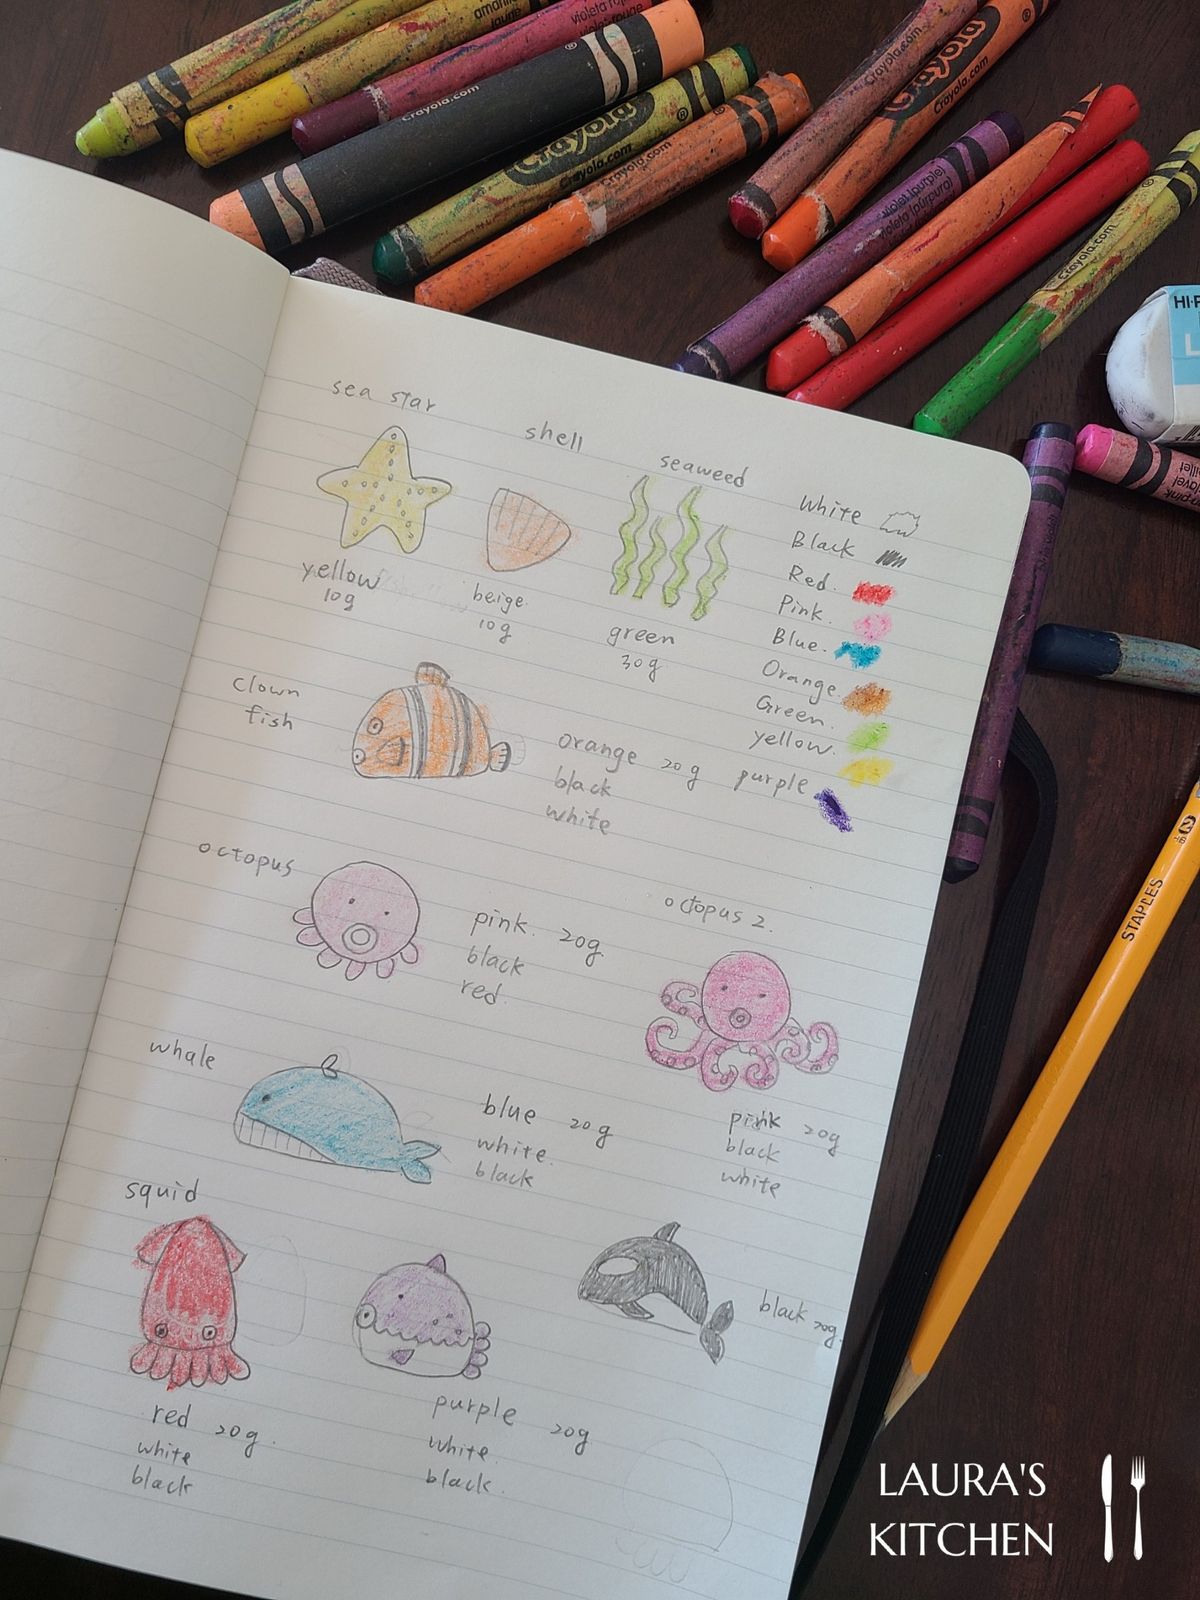 amarillo
jaune
Crayola.com
Crayola
Crayola.com
Crayola.com
Crayola.com
Crayola
Crayola.com
violet (purple)
violeta (púrpura)
Crayola.com
HI-P
sea star
shell
seaweed
yellow
10g
beige
10g
green
30g
White
Black
Red.
Pink.
Blue.
Orange.
Green.
yellow.
purple
clown
fish
orange 20g
black
white
octopus
pink. 20g
black
red.
octopus 2.
pink 20g
black
white
whale
blue 20g
white.
black
squid
red 20g.
white
black
purple 20g
white.
black.
black 20g.
STAPLES
LAURA'S
KITCHEN